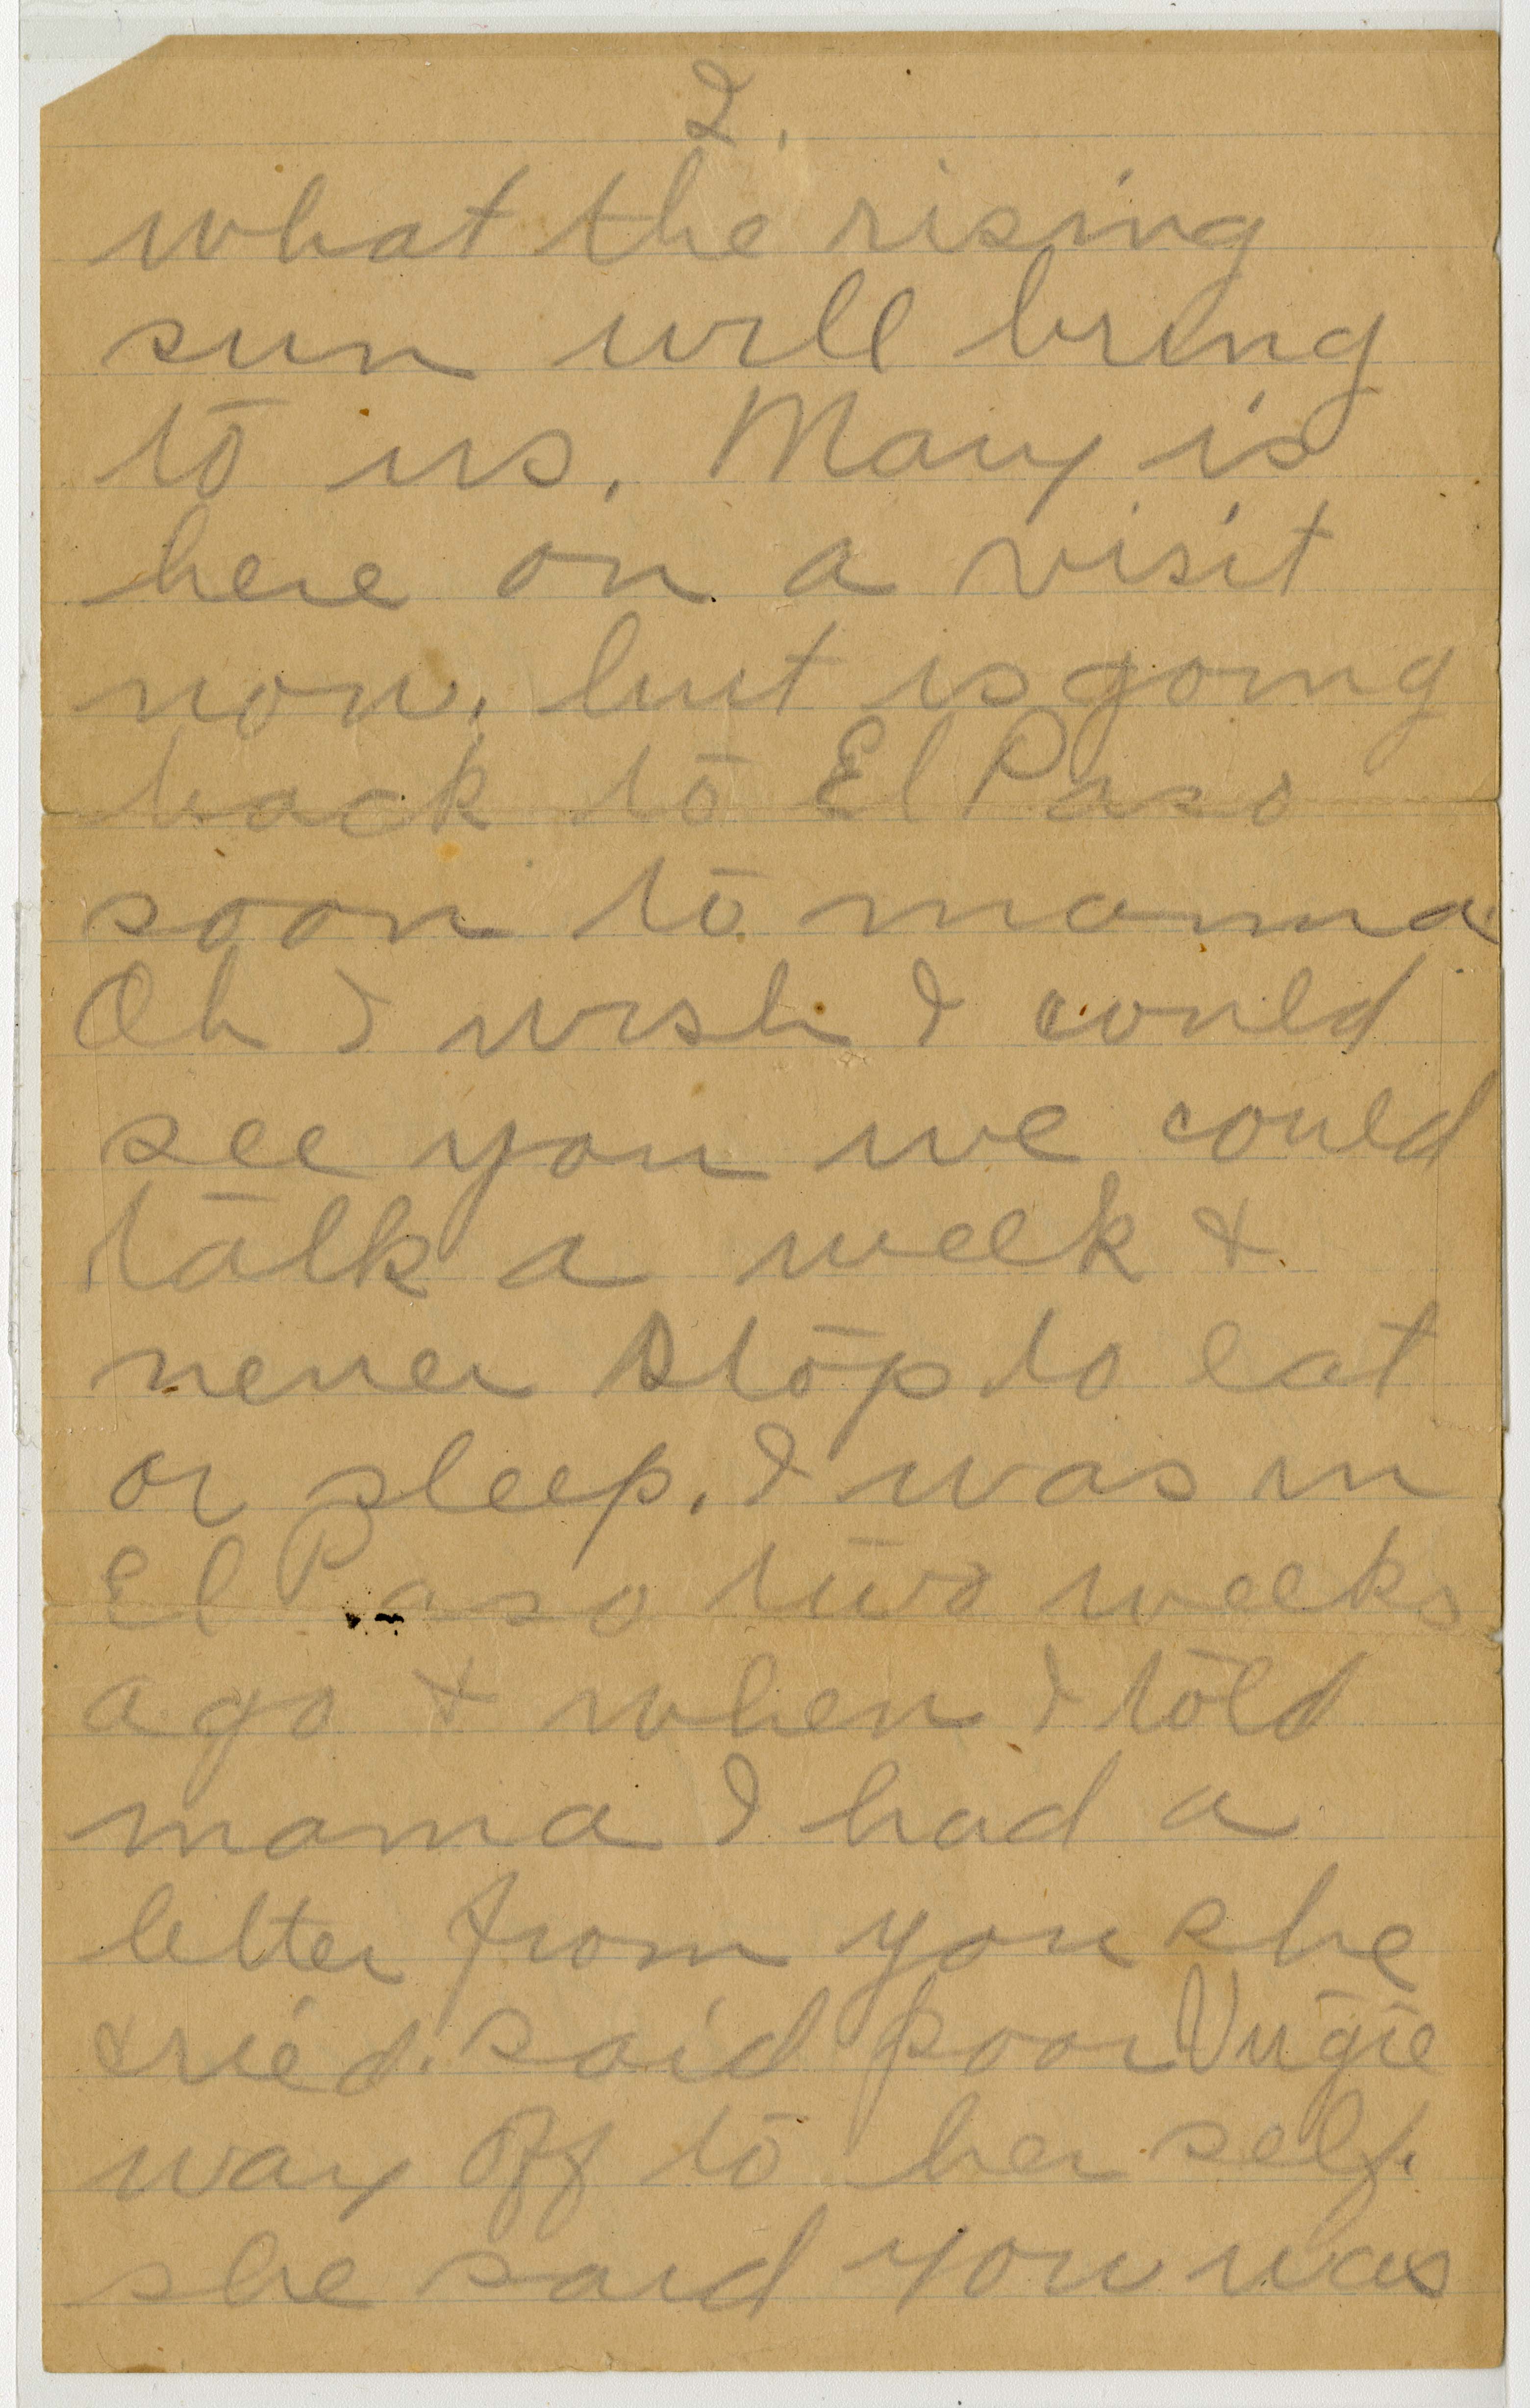 2.
what the rising
sun will bring
to us. Mary is
here on a visit
now, but is going
back to El Paso
soon to mama
Oh I wish I could
see you we could
talk a week &
never stop to eat
or sleep. I was in
El Paso two weeks
ago & when I told
mama I had a
letter from you she
cried. said poor Virgie
way off to her self.
she said you was